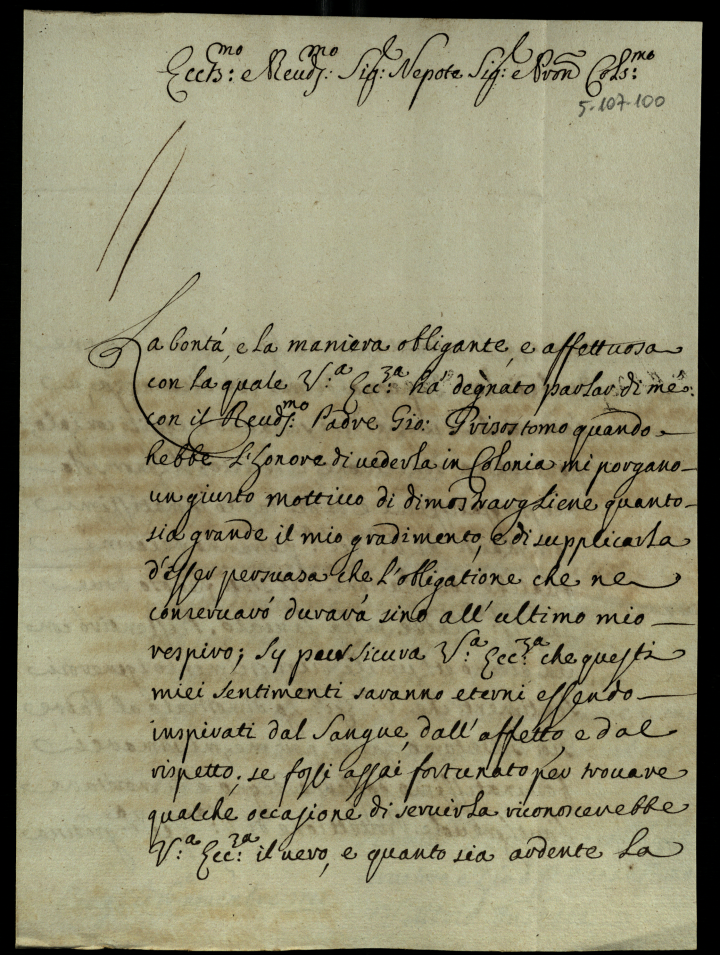 Ecc.mo e Reud.mo Sig.r Nepote Sig.r e Pron Cols.mo
5-107-100
La bontá, e la maniera obligante, e affettuosa
con la quale V.a Ecc.za há degnato parlar di me
con il Reud.mo Padre Gio: Grisostomo quando
hebbe l'honore di uederla in Colonia mi porgano
un giusto mottiuo di dimostrargliene quanto
sia grande il mio gradimento, e di supplicarla
d'esser persuasa che l'obligatione che ne
conseruaró durará sino all'ultimo mio
respiro; Sÿ pur sicura V.a Ecc.za che questi
miei sentimenti saranno eterni essendo
inspirati dal Sangue, dall'affetto, e dal
rispetto; se fossi assai fortunato per trouare
qualche occasione di seruirla riconoscerebbe
V.a Ecc.za il uero, e quanto sia ardente la